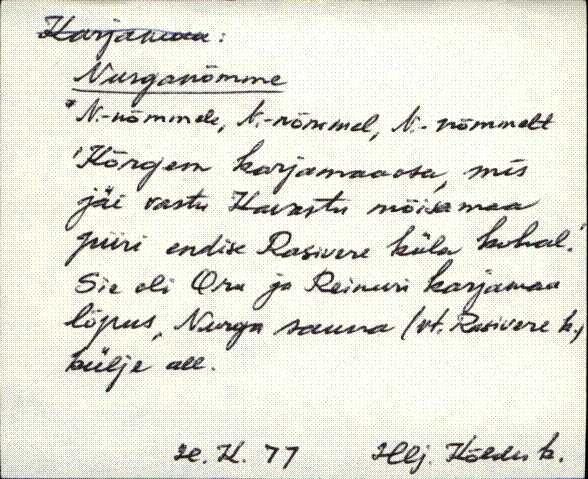 Karjamaa:
Nurganõmme
"N.-nõmmele, N.-nõmmel, N.-nõmmelt
'Kõrgem karjamaaosa, mis
jäi vastu Kavastu mõisamaa
piiri endise Rasivere küla kohal.'
See oli Oru ja Reinuri karjamaa
lõpus, Nurga sauna (vt. Rasivere k.)
külje all.
H. K. 77 Hlj. Kõldu k.